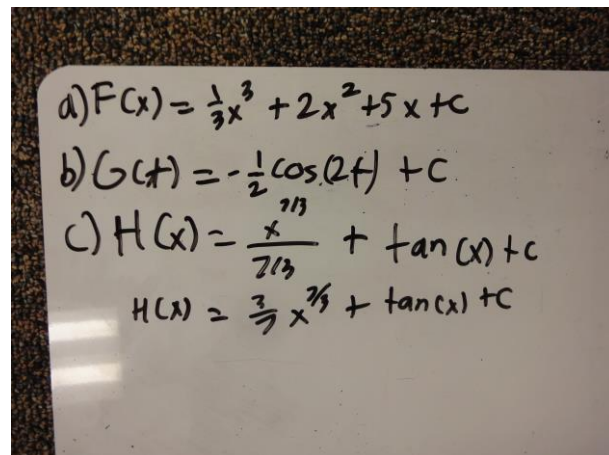 a) F(x) = 1/3 x^3 + 2x^2 + 5x + C
b) G(t) = -1/2 cos(2t) + C
c) H(x) = x^7/3 / 7/3 + tan(x) + C
H(x) = 3/7 x^7/3 + tan(x) + C